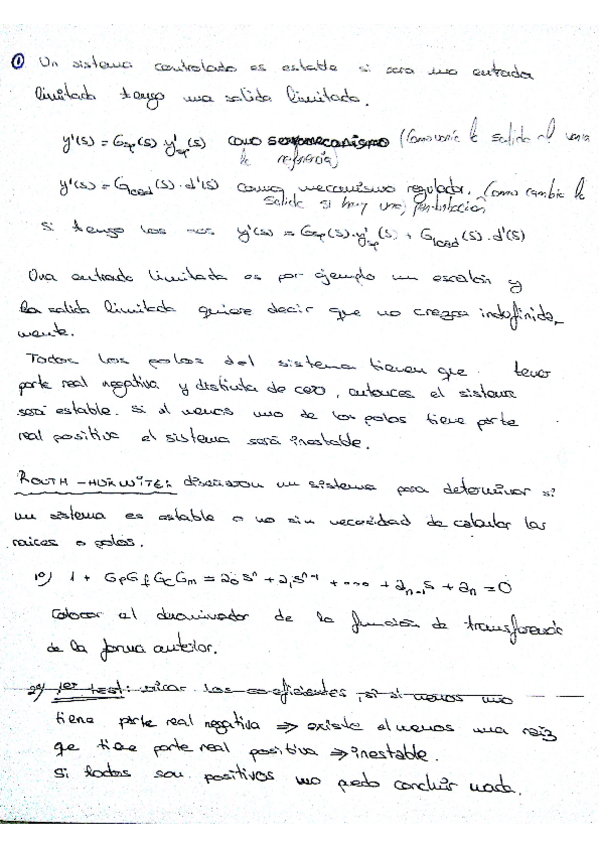 ① Un sistema controlado es estable si para una entrada
limitada tengo una salida limitada.
y'(s) = Gsp(s) y'sp(s) como servomecanismo (Como varía la salida al variar
la referencia)
y'(s) = Gload(s) · d'(s) como mecanismo regulador. (Como cambia la
salida si hay una perturbación
Si tengo los dos y'(s) = Gsp(s) · y'sp(s) + Gload(s) · d'(s)
Una entrada limitada es por ejemplo un escalón y
la salida limitada quiere decir que no crezca indefinida-
mente.
Todos los polos del sistema tienen que tener
parte real negativa y distinta de cero, entonces el sistema
será estable. Si al menos uno de los polos tiene parte
real positiva el sistema será inestable.
ROUTH - HURWITZ diseñaron un sistema para determinar si
un sistema es estable o no sin necesidad de calcular las
raices o polos.
1º) 1 + GpGfGcGm = a0 sⁿ + a1 sⁿ⁻¹ + ... + an-1 s + an = 0
Colocar el denominador de la función de transferencia
de la forma anterior.
2º) 1er test: mirar los coeficientes, si al menos uno
tiene parte real negativa ⇒ existe al menos una raiz
que tiene parte real positiva ⇒ inestable.
Si todos son positivos no puedo concluir nada.